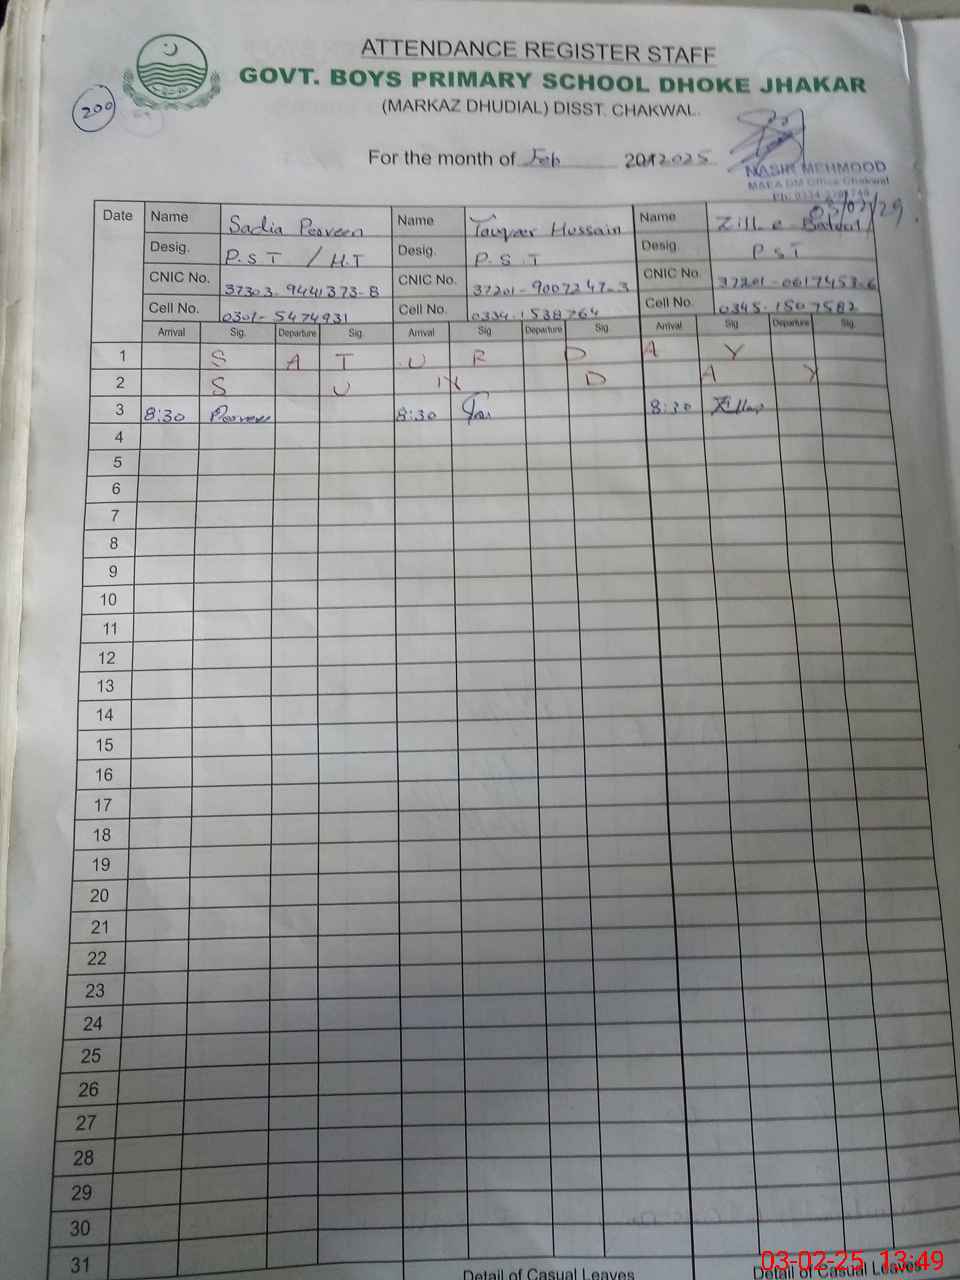 ATTENDANCE REGISTER STAFF
GOVT. BOYS PRIMARY SCHOOL DHOKE JHAKAR
(MARKAZ DHUDIAL) DISST. CHAKWAL.
200
For the month of Feb 2025
NASIR MEHMOOD
MAEA DM Office Chakwal
Date Name Sadia Parveen Name Tauqeer Hussain Name Zill e Batool
Desig. P.S.T / H.T Desig. P.S.T Desig. PST
CNIC No. 37303-9441373-8 CNIC No. 37201-9007247-3 CNIC No. 37201-0617453-6
Cell No. 0301-5474931 Cell No. 0334-1538764 Cell No. 0345-1507582
Arrival Sig. Departure Sig. Arrival Sig Departure Sig. Arrival Sig Departure Sig.
1 S A T U R D A Y
2 S U N D A Y
3 8:30 8:30 8:30
4
5
6
7
8
9
10
11
12
13
14
15
16
17
18
19
20
21
22
23
24
25
26
27
28
29
30
31
Detail of Casual Leaves Detail of Casual Leaves
03-02-25 13:49